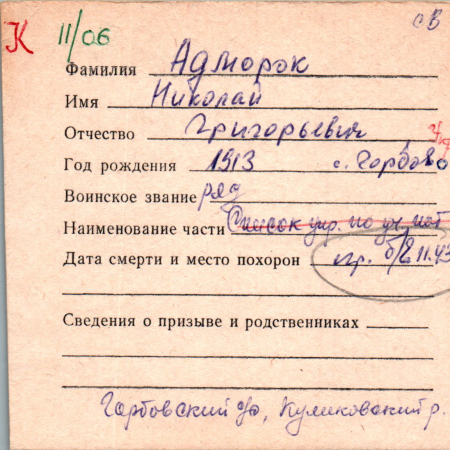 К 11/06 св
Фамилия Адморок
Имя Николай
Отчество Григорьевич
Год рождения 1913 с. Горбово
Воинское звание ряд
Наименование части Список упр. по уч. пот
Дата смерти и место похорон 11.43
Сведения о призыве и родственниках
Гарбовский с/с, Куликовский р.